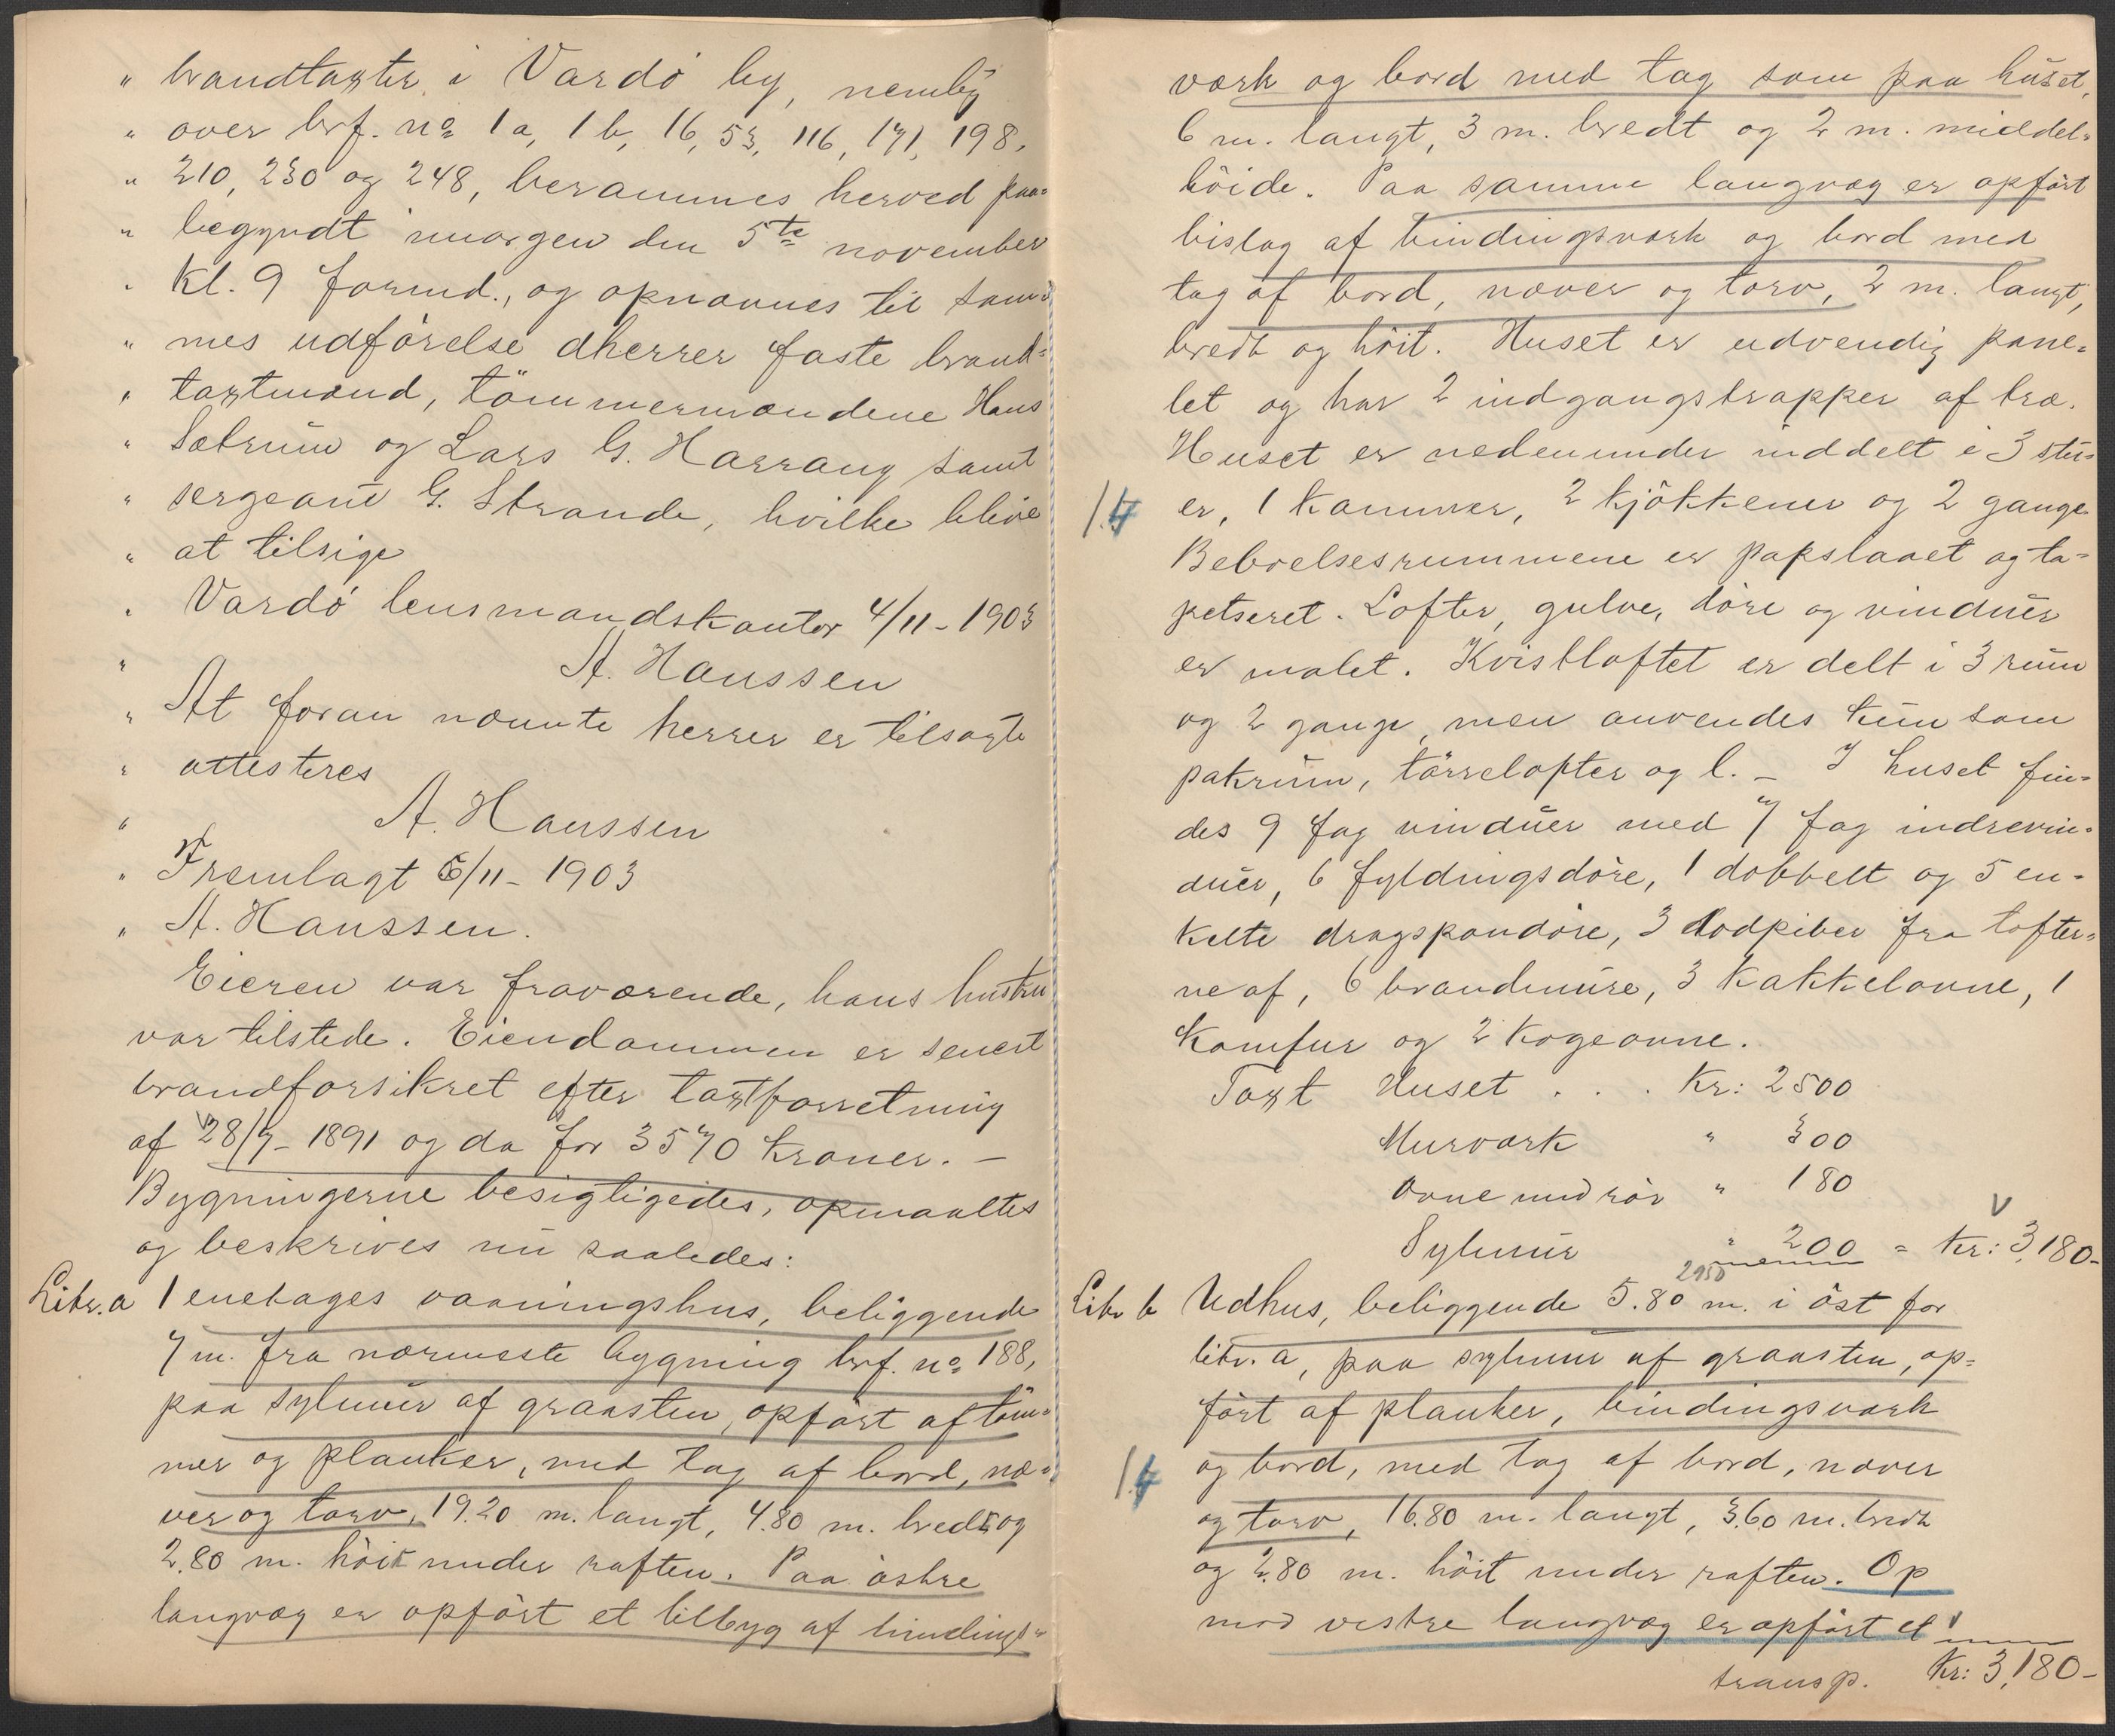 " brandtaxter i Vardö by, nemlig
" over brf. nº 1a, 1b, 16, 53, 116, 171, 198,
" 210, 230 og 248, berammes herved paa=
" begyndt imorgen den 5te november
" kl. 9 formd., og opnævnes til sam=
" mes udförelse dherrer faste brand=
" taxtmænd, tömmermændene Hans
" Sætrum og Lars G. Harrang samt
" sergeant G. Strande, hvilke blive
" at tilsige
" Vardö lensmandskontor 4/11 - 1903
" A. Hanssen
" At foran nævnte herrer er tilsagte
" attesteres
" A. Hanssen
" Fremlagt 5/11 - 1903
" A. Hanssen.
Eieren var fraværende, hans hustru
var tilstede. Eiendommen er senest
brandforsikret efter taxtforretning
af 28/7 - 1891 og da for 3570 kroner. -
Bygningerne besigtigedes, opmaaltes
og beskrives nu saaledes:
Litr. a 1 enetages vaaningshus, beliggende
7 m. fra nærmeste bygning brf. nº 188,
paa sylmur af graasten, opfört af töm=
mer og planker, med tag af bord, næ=
ver og torv, 19.20 m. langt, 4.80 m. bredt og
2.80 m. höit under raften. Paa östre
langvæg er opfört et tilbyg af bindings=
værk og bord med tag som paa huset,
6 m. langt, 3 m. bredt og 2 m. middel=
höide. Paa samme langvæg er opfört
bislag af bindingsværk og bord med
tag af bord, næver og torv, 2 m. langt,
bredt og höit. Huset er udvendig pane=
let og har 2 indgangstrapper af træ.
Huset er nedenunder inddelt i 3 stu=
er, 1 kammer, 2 kjökkener og 2 gange.
Beboelsesrummene er papslaaet og ta=
petseret. Lofter, gulve, döre og vinduer
er malet. Kvistloftet er delt i 3 rum
og 2 gange, men anvendes kun som
pakrum, törrelofter og l. - I huset fin=
des 9 fag vinduer med 7 fag indrevin=
duer, 6 fyldingsdöre, 1 dobbelt og 5 en=
kelte dragspondöre, 3 Lodpiber fra lofter=
ne af, 6 brandmure, 3 kakkelovne, 1
komfur og 2 kogeovne.
Taxt Huset . . . Kr: 2500
Murværk " 300
Ovne med rör " 180
Sylmur " 200 = Kr: 3,180-
2950
Litr b Udhus, beliggende 5.80 m. i öst for
litr. a, paa sylmur af graasten, op=
fört af planker, bindingsværk
og bord, med tag af bord, næver
og torv, 16.80 m. langt, 3.60 m. bredt
og 2.80 m. höit under raften. Op
mod vestre langvæg er opfört et
transp. Kr: 3,180-